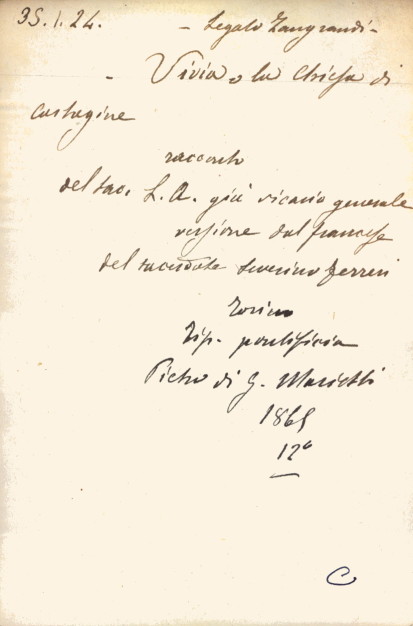 35.1.24. - Legato Zangrandi -
- Vivia o la Chiesa di
Cartagine
racconto
del sac. L. A. già vicario generale
versione dal francese
del sacerdote Severino Ferreri
Torino
Tip. pontificia
Pietro di G. Marietti
1865
12°
C